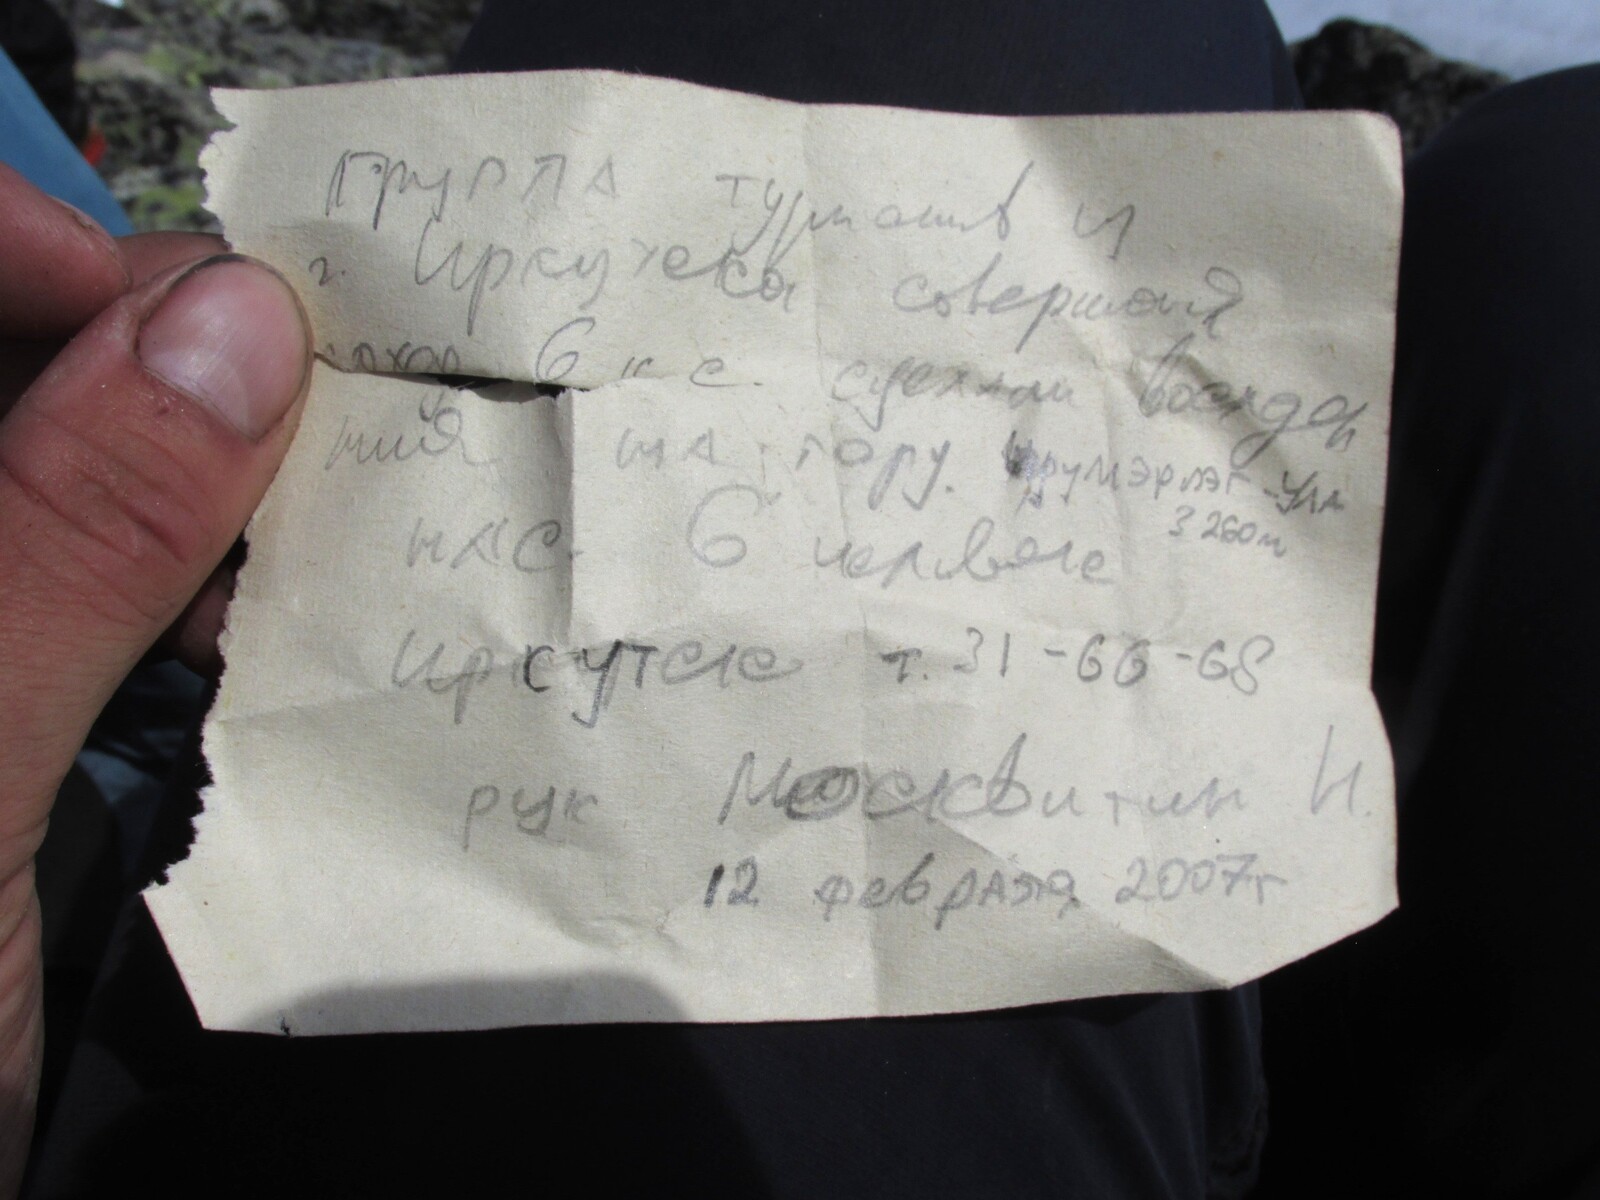 ГРУППА туристов и
г. Иркутска совершая
поход 6 к с. сделали восхожде
ния на гору. Урумэрлэг-Ула
3260м
нас 6 человек
Иркутск т. 31-66-68
рук Москвитин Н.
12 февраля 2007г